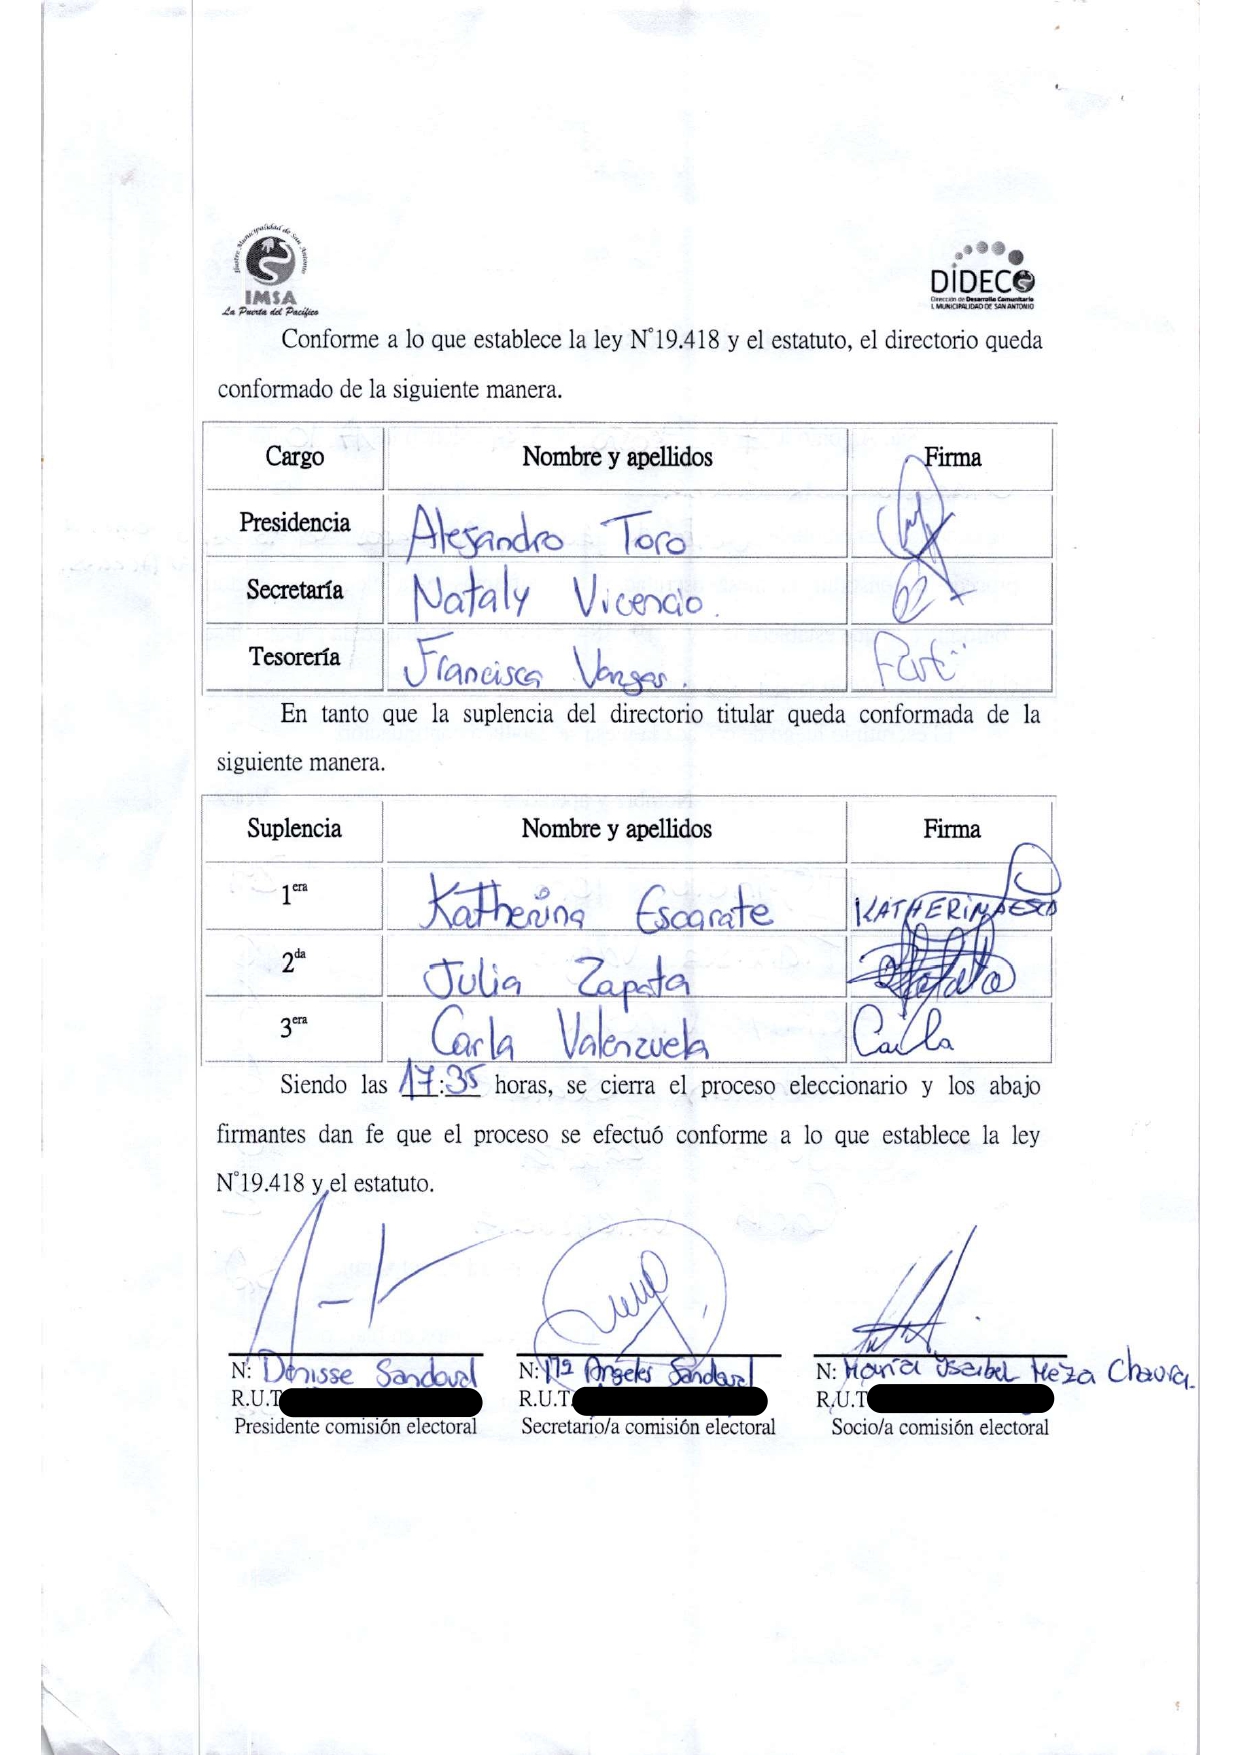 Ilustre Municipalidad de San Antonio
IMSA
La Puerta del Pacífico
DIDECO
Dirección de Desarrollo Comunitario
I. MUNICIPALIDAD DE SAN ANTONIO
Conforme a lo que establece la ley N°19.418 y el estatuto, el directorio queda
conformado de la siguiente manera.
Cargo Nombre y apellidos Firma
Presidencia Alejandro Toro
Secretaría Nataly Vicencio.
Tesorería Francisca Vargas.
En tanto que la suplencia del directorio titular queda conformada de la
siguiente manera.
Suplencia Nombre y apellidos Firma
1era Katherina Escarate KATHERINA
2da Julia Zapata
3era Carla Valenzuela Carla
Siendo las 17:35 horas, se cierra el proceso eleccionario y los abajo
firmantes dan fe que el proceso se efectuó conforme a lo que establece la ley
N°19.418 y el estatuto.
N: Denisse Sandoval N: Mª Angeles Sandoval N: María Ysabel Meza Chavra.
R.U.T R.U.T R.U.T
Presidente comisión electoral Secretario/a comisión electoral Socio/a comisión electoral